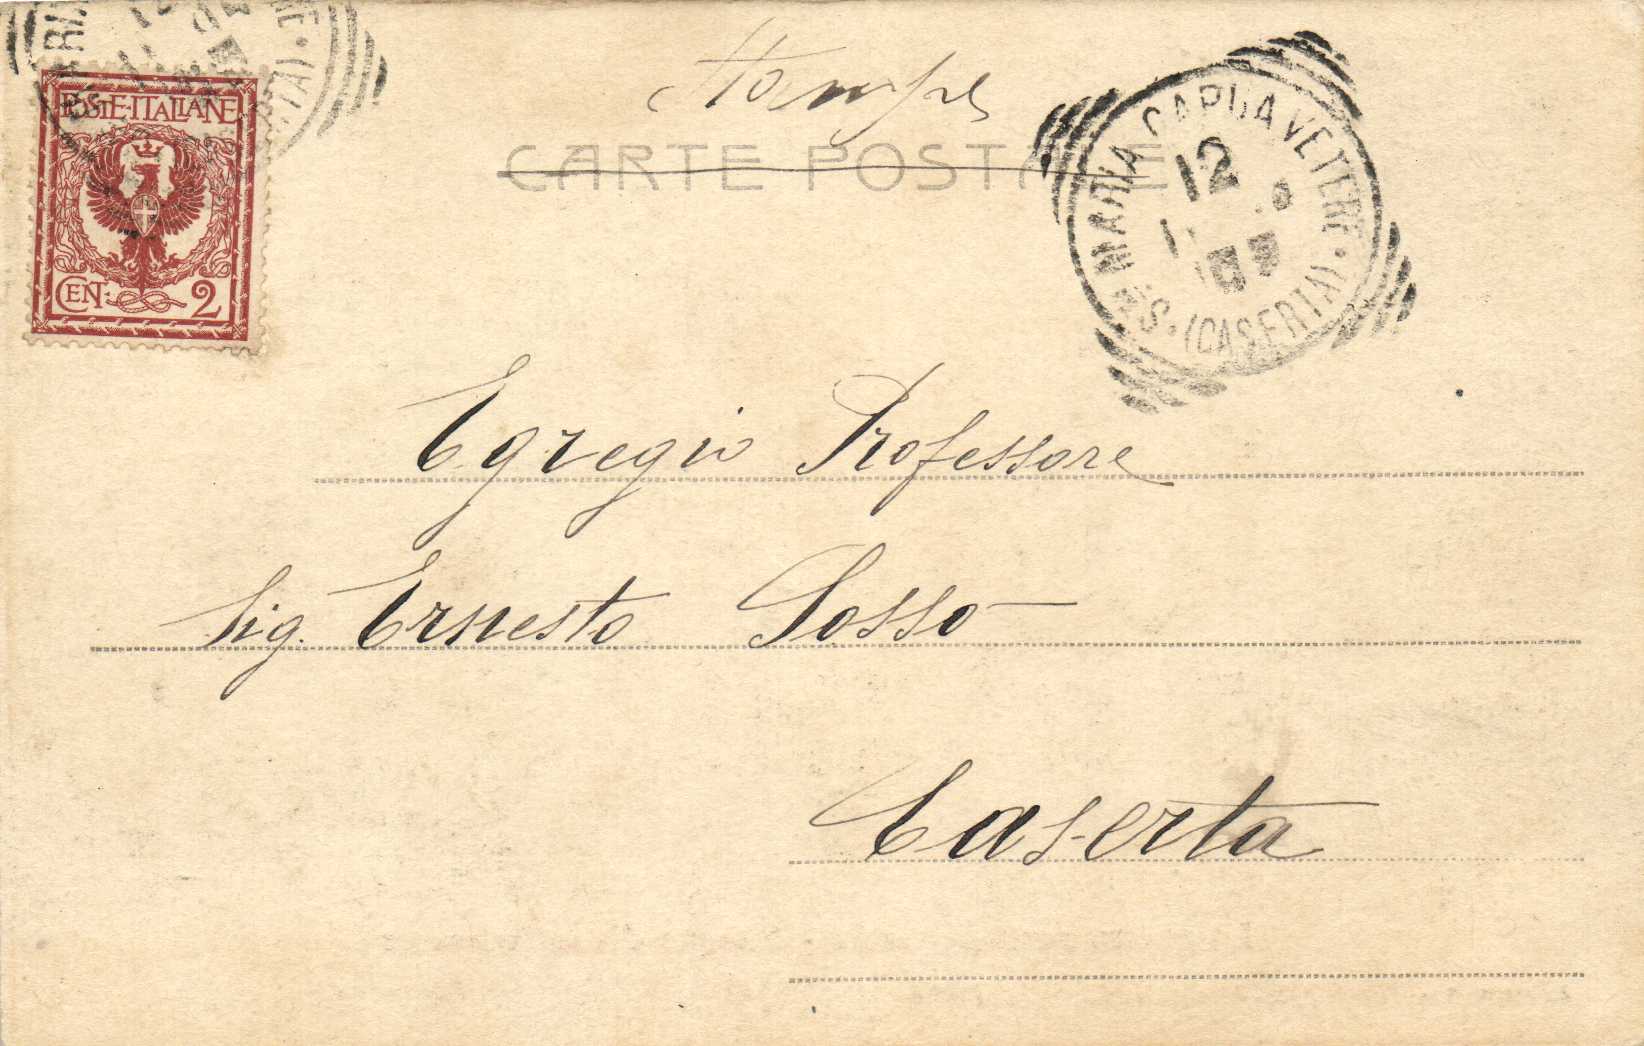 Stampe
CARTE POSTALE
POSTE·ITALIANE
CEN: 2
S. MARIA CAPUA VETERE · (CASERTA)
12
Egregio Professore
Sig. Ernesto Sosso
Caserta